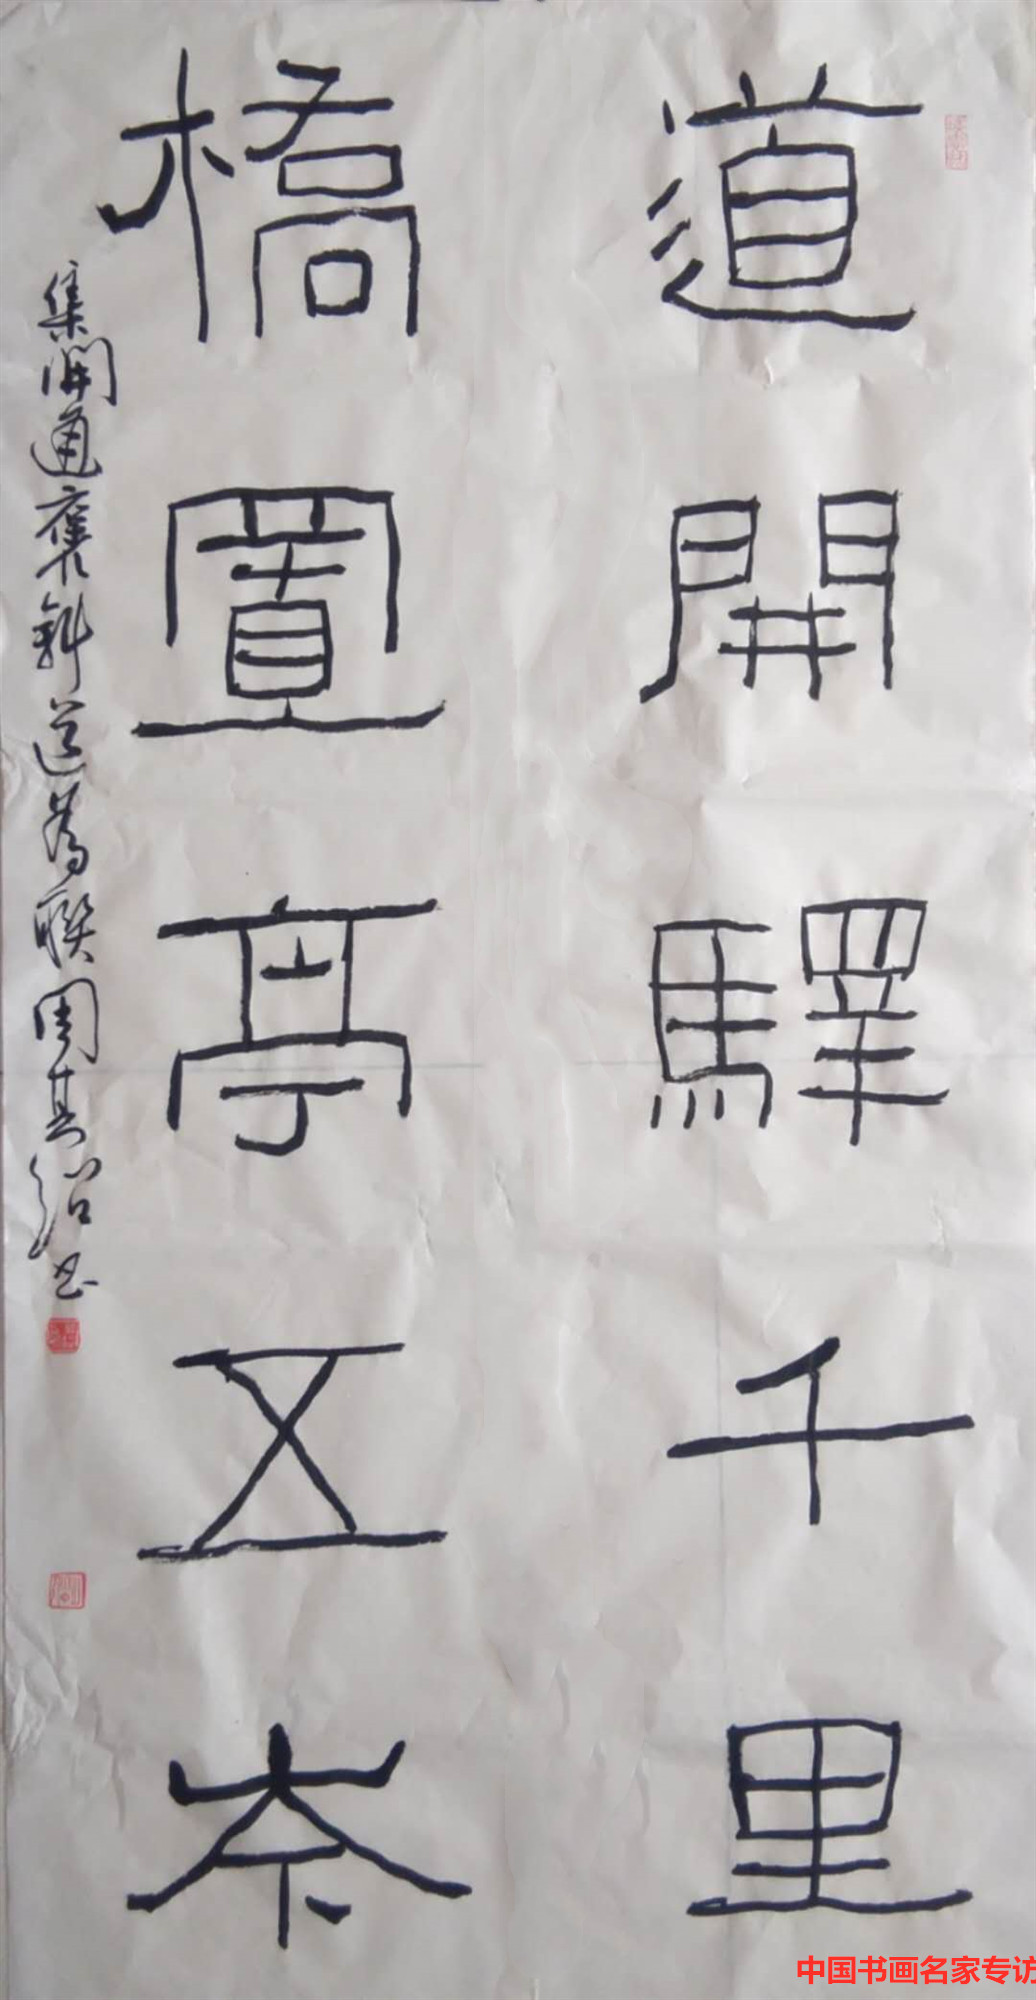 道開驛千里
橋置亭五岑
集開通褒斜道為聯周其紹书
中国书画名家专访